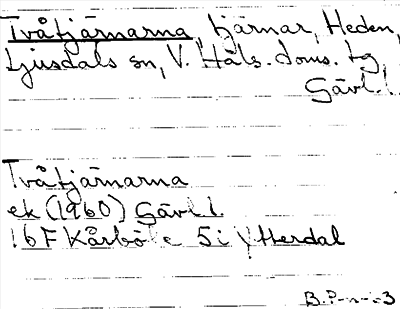 Tvåtjärnarna, tjärnar, Heden,
Ljusdals sn, V. Häls. doms. tg
Gävl. l.
Tvåtjärnarna
ek (1960) Gävl. l.
16F Kårböle 5i Ytterdal